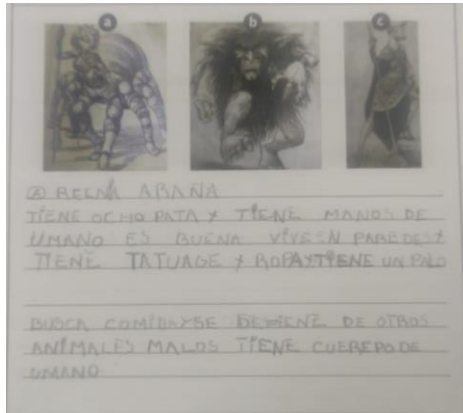 a b c
Ⓐ REENA ARAÑA
TIENE OCHO PATA Y TIENE MANOS DE
UMANO ES BUENA VIVE EN PAREDES Y
TIENE TATUAGE Y ROPA Y TIENE UN PALO
BUSCA COMIDA Y SE DEFIENE DE OTROS
ANIMALES MALOS TIENE CUERPO DE
UMANO